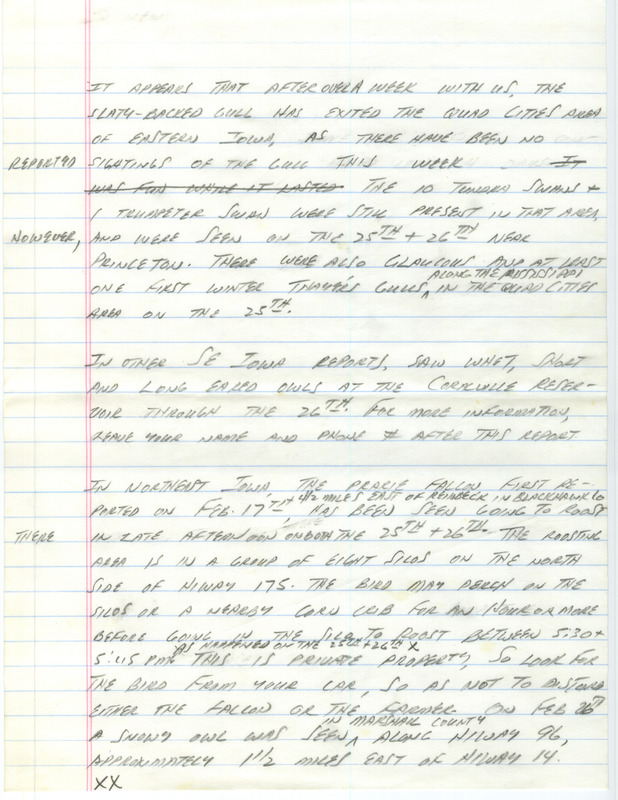 IT APPEARS THAT AFTER OVER A WEEK WITH US, THE
SLATY-BACKED GULL HAS EXITED THE QUAD CITIES AREA
OF EASTERN IOWA, AS THERE HAVE BEEN NO
REPORTED SIGHTINGS OF THE GULL THIS WEEK IT
WAS FUN WHILE IT LASTED THE 10 TUNDRA SWANS +
1 TRUMPETER SWAN WERE STILL PRESENT IN THAT AREA,
HOWEVER, AND WERE SEEN ON THE 25TH + 26TH NEAR
PRINCETON. THERE WERE ALSO GLAUCOUS AND AT LEAST
ALONG THE MISSISSIPPI
ONE FIRST WINTER THAYERS GULLS, IN THE QUAD CITIES
AREA ON THE 25TH.
IN OTHER SE IOWA REPORTS, SAW WHET, SHORT
AND LONG EARED OWLS AT THE CORALVILLE RESER-
VOIR THROUGH THE 26TH. FOR MORE INFORMATION,
LEAVE YOUR NAME AND PHONE # AFTER THIS REPORT.
IN NORTHEAST IOWA, THE PRARIE FALCON FIRST RE-
4 1/2 MILES EAST OF REINBECK IN BLACKHAWK CO
PORTED ON FEB. 17TH, HAS BEEN SEEN GOING TO ROOST
THERE IN LATE AFTERNOON ON BOTH THE 25TH + 26TH. THE ROOSTING
AREA IS IN A GROUP OF EIGHT SILOS ON THE NORTH
SIDE OF HIWAY 175. THE BIRD MAY PERCH ON THE
SILOS OR A NEARBY CORN CRIB FOR AN HOUR OR MORE
BEFORE GOING IN THE SILO TO ROOST BETWEEN 5:30 +
AS HAPPENED ON THE 25TH + 26TH X
5:45 PM. THIS IS PRIVATE PROPERTY, SO LOOK FOR
THE BIRD FROM YOUR CAR, SO AS NOT TO DISTURB
EITHER THE FALCON OR THE FARMER ON FEB 26TH
IN MARSHALL COUNTY
A SNOWY OWL WAS SEEN, ALONG HIWAY 96,
APPROXIMATELY 1 1/2 MILES EAST OF HIWAY 14.
XX